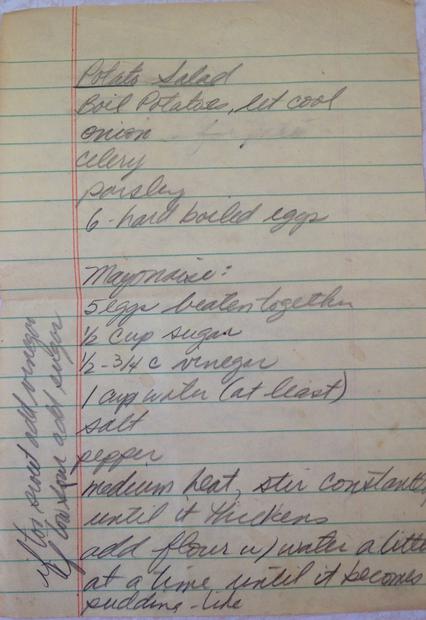 Potato Salad
Boil Potatoes, let cool
onion
celery
parsley
6 - hard boiled eggs
Mayonaise:
5 eggs beaten together
1/2 cup sugar
1/2 - 3/4 c vinegar
1 cup water (at least)
salt
pepper
medium heat, stir constantly
until it thickens
add flour w/ water a little
at a time until it becomes
pudding-like
if too sweet add vinegar
if too sour add sugar